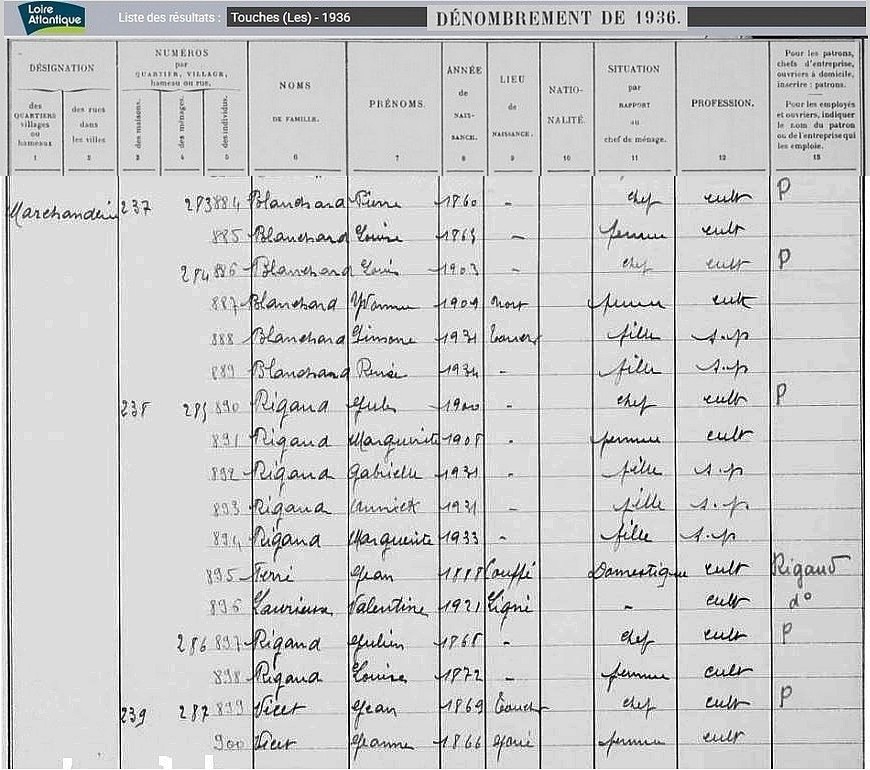 Loire Atlantique
Liste des résultats : Touches (Les) - 1936
DÉNOMBREMENT DE 1936.
DÉSIGNATION
des QUARTIERS villages ou hameaux 1
des rues dans les villes 2
NUMÉROS par QUARTIER, VILLAGE, hameau ou rue.
des maisons. 3
des ménages. 4
des individus. 5
NOMS DE FAMILLE. 6
PRÉNOMS. 7
ANNÉE de NAIS- SANCE. 8
LIEU de NAISSANCE. 9
NATIO- NALITÉ. 10
SITUATION par RAPPORT au chef de ménage. 11
PROFESSION. 12
Pour les patrons, chefs d'entreprise, ouvriers à domicile, inscrire : patrons.
Pour les employés et ouvriers, indiquer le nom du patron ou de l'entreprise qui les emploie. 13
237 283 884 Blanchard Pierre 1860 - chef cult P
885 Blanchard Louise - femme cult
284 886 Blanchard Louis 1903 - chef cult P
887 Blanchard Yvonne 1909 Nort femme cult
888 Blanchard Simone 1931 Touches fille s.p
889 Blanchard Renée 1934 - fille s.p
238 285 890 Rigaud Jules 1900 - chef cult P
891 Rigaud Marguerite 1908 - femme cult
892 Rigaud Gabrielle 1931 - fille s.p
893 Rigaud Annick 1931 - fille s.p
894 Rigaud Marguerite 1933 - fille s.p
895 Ferré Jean 1888 Couffé Domestique cult Rigaud
896 Laurieux Valentine 1921 Ligné - cult do
286 897 Rigaud Julien 1868 - chef cult P
898 Rigaud Louise 1872 - femme cult
239 287 899 Vicet Jean 1869 Touches chef cult P
900 Vicet Jeanne 1866 femme cult